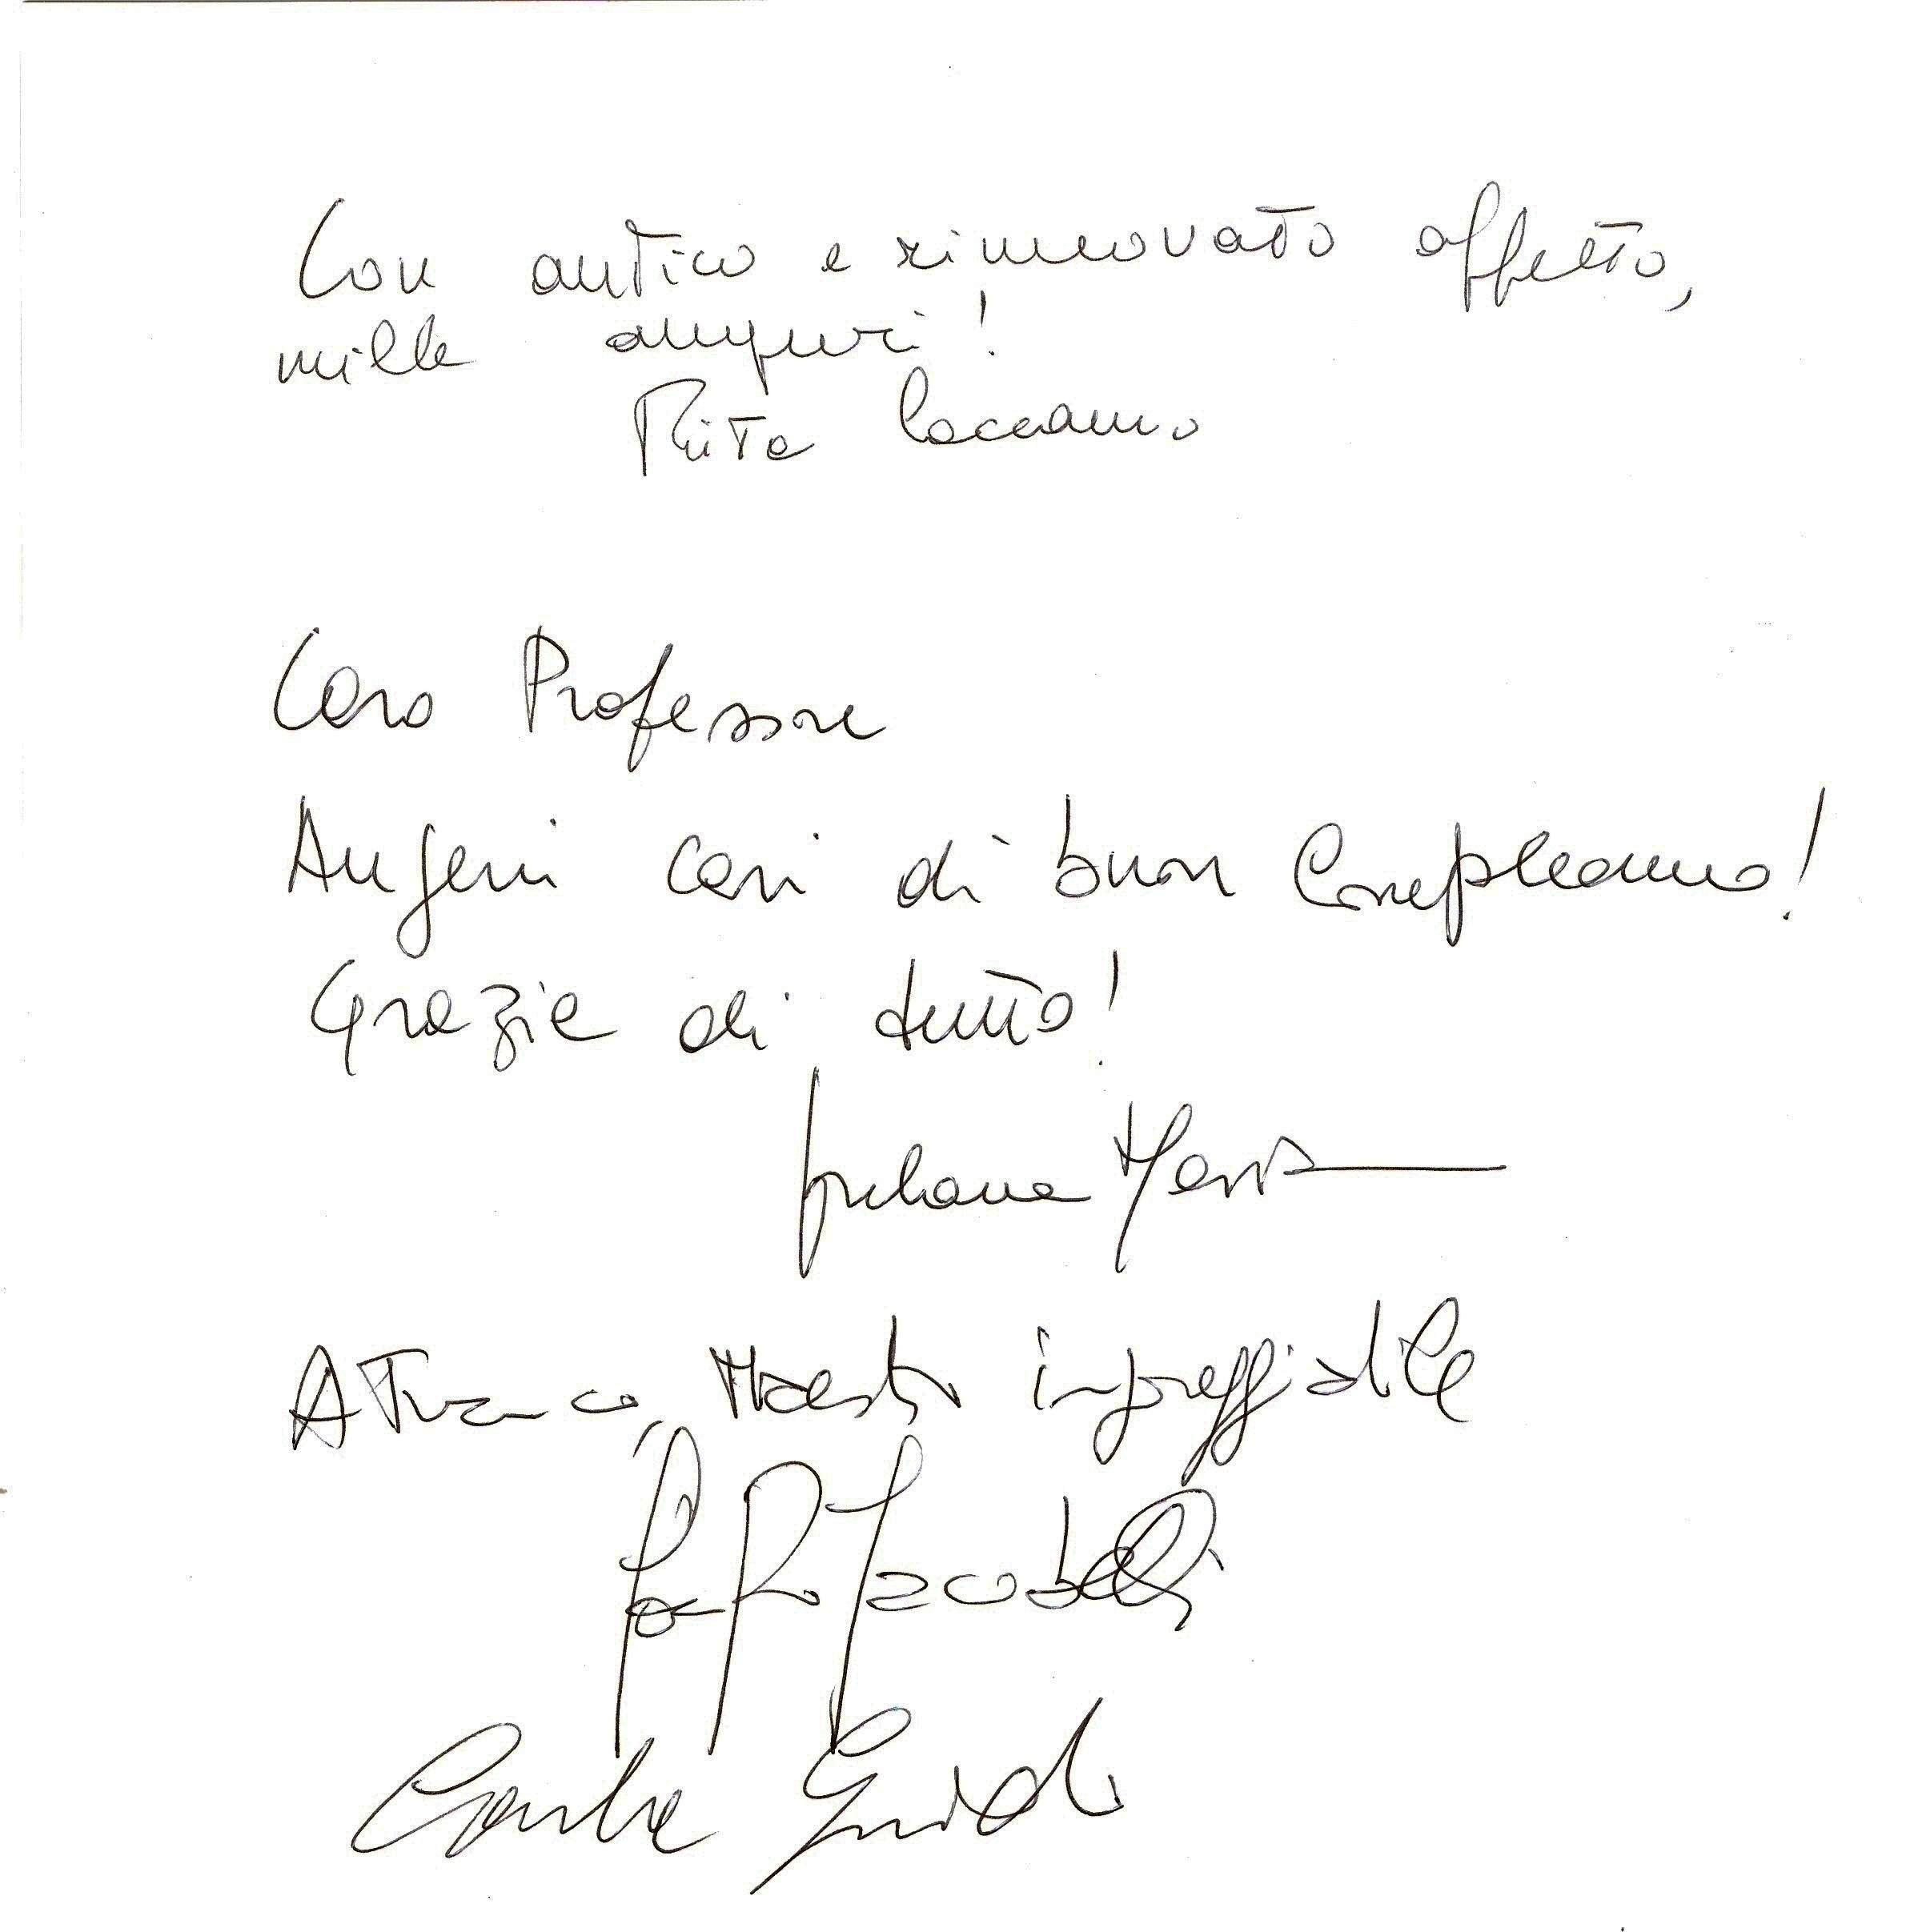 Con antico e rinnovato affetto,
mille auguri!
Rita Caccamo
Caro Professore
Auguri cari di buon Compleanno!
Grazie di tutto!
Giuliana
A Franco Maestro impareggiabile
Iacobelli
Guido